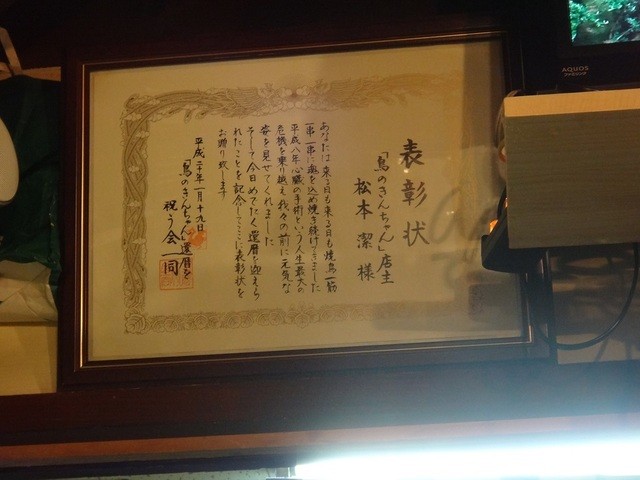 表彰状
「鳥のきんちゃん」店主
松本 潔 様
あなたは来る日も来る日も焼鳥一筋
一串一串に魂を込め焼き続けてきました
平成八年心臓の手術という人生最大の
危機を乗り越え我々の前に元気な
姿を見せてくれました
そして今日めでたく還暦を迎えら
れたことを記念してここに表彰状を
お贈り致します
平成二十年一月十九日
「鳥のきんちゃん」還暦を
祝う会一同
AQUOS